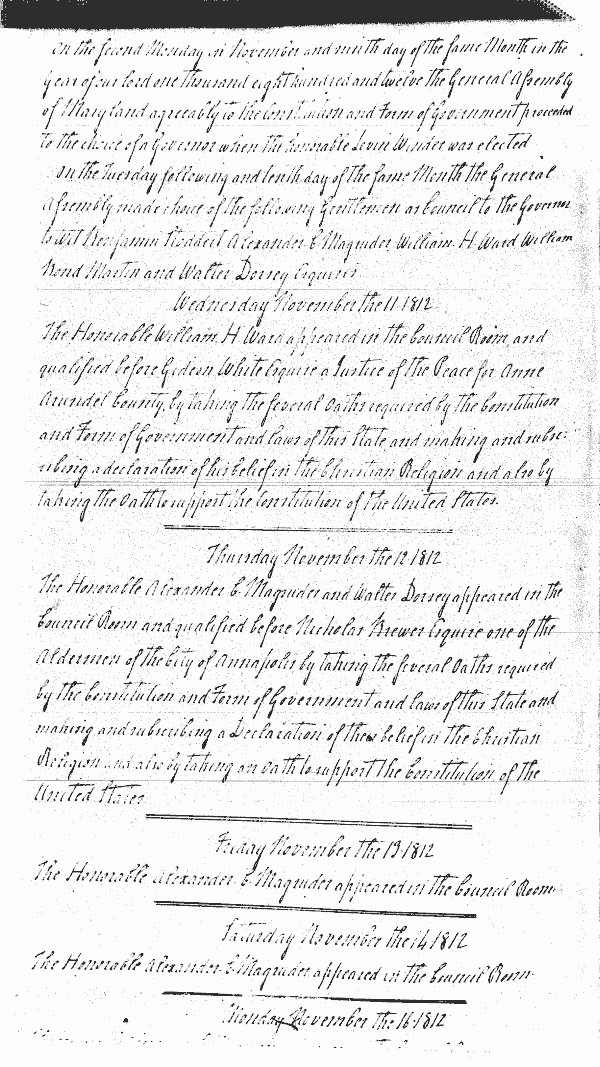 On the second Monday in November and ninth day of the same Month in the
year of our lord one thousand eight hundred and twelve the General Assembly
of Maryland agreeably to the Constitution and Form of Government proceeded
to the choice of a Governor when the honorable Levin Winder was elected
On the Tuesday following and tenth day of the same Month the General
Assembly made choice of the following Gentlemen as Council to the Governor
to wit Benjamin Stoddert Alexander C Magruder William H. Ward William
Bond Martin and Walter Dorsey Esquires
Wednesday November the 11 1812
The Honorable William H. Ward appeared in the Council Room, and
qualified before Gideon White Esquire a Justice of the Peace for Anne
Arundel County, by taking the several Oaths required by the Constitution
and Form of Government and laws of this State and making and subsc-
ribing a declaration of his belief in the Christian Religion and also by
taking the Oath to support the Constitution of the United States.
Thursday November the 12 1812
The Honorable Alexander C. Magruder and Walter Dorsey appeared in the
Council Room and qualified before Nicholas Brewer Esquire one of the
Aldermen of the City of Annapolis by taking the several Oaths required
by the Constitution and Form of Government and laws of this State and
making and subscribing a Declaration of their belief in the Christian
Religion and also by taking an Oath to support the Constitution of the
United States
Friday November the 13 1812
The Honorable Alexander C. Magruder appeared in the Council Room
Saturday November the 14 1812
The Honorable Alexander C. Magruder appeared in the Council Room
Monday November the 16 1812